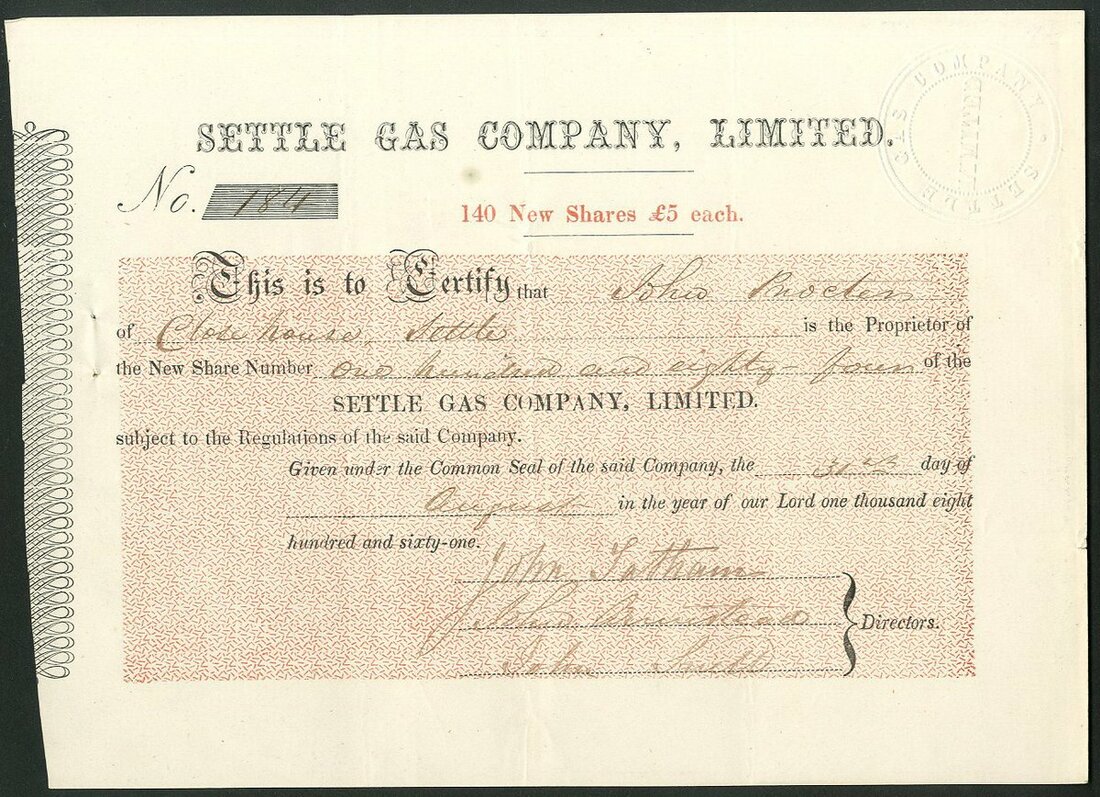 SETTLE GAS COMPANY, LIMITED.
SETTLE GAS COMPANY · LIMITED
No. 184
140 New Shares £5 each.
This is to Certify that John Procter
of Close house, Settle is the Proprietor of
the New Share Number one hundred and eighty-four of the
SETTLE GAS COMPANY, LIMITED.
subject to the Regulations of the said Company.
Given under the Common Seal of the said Company, the 31st day of
August in the year of our Lord one thousand eight
hundred and sixty-one.
John Tatham
John
John
Directors.